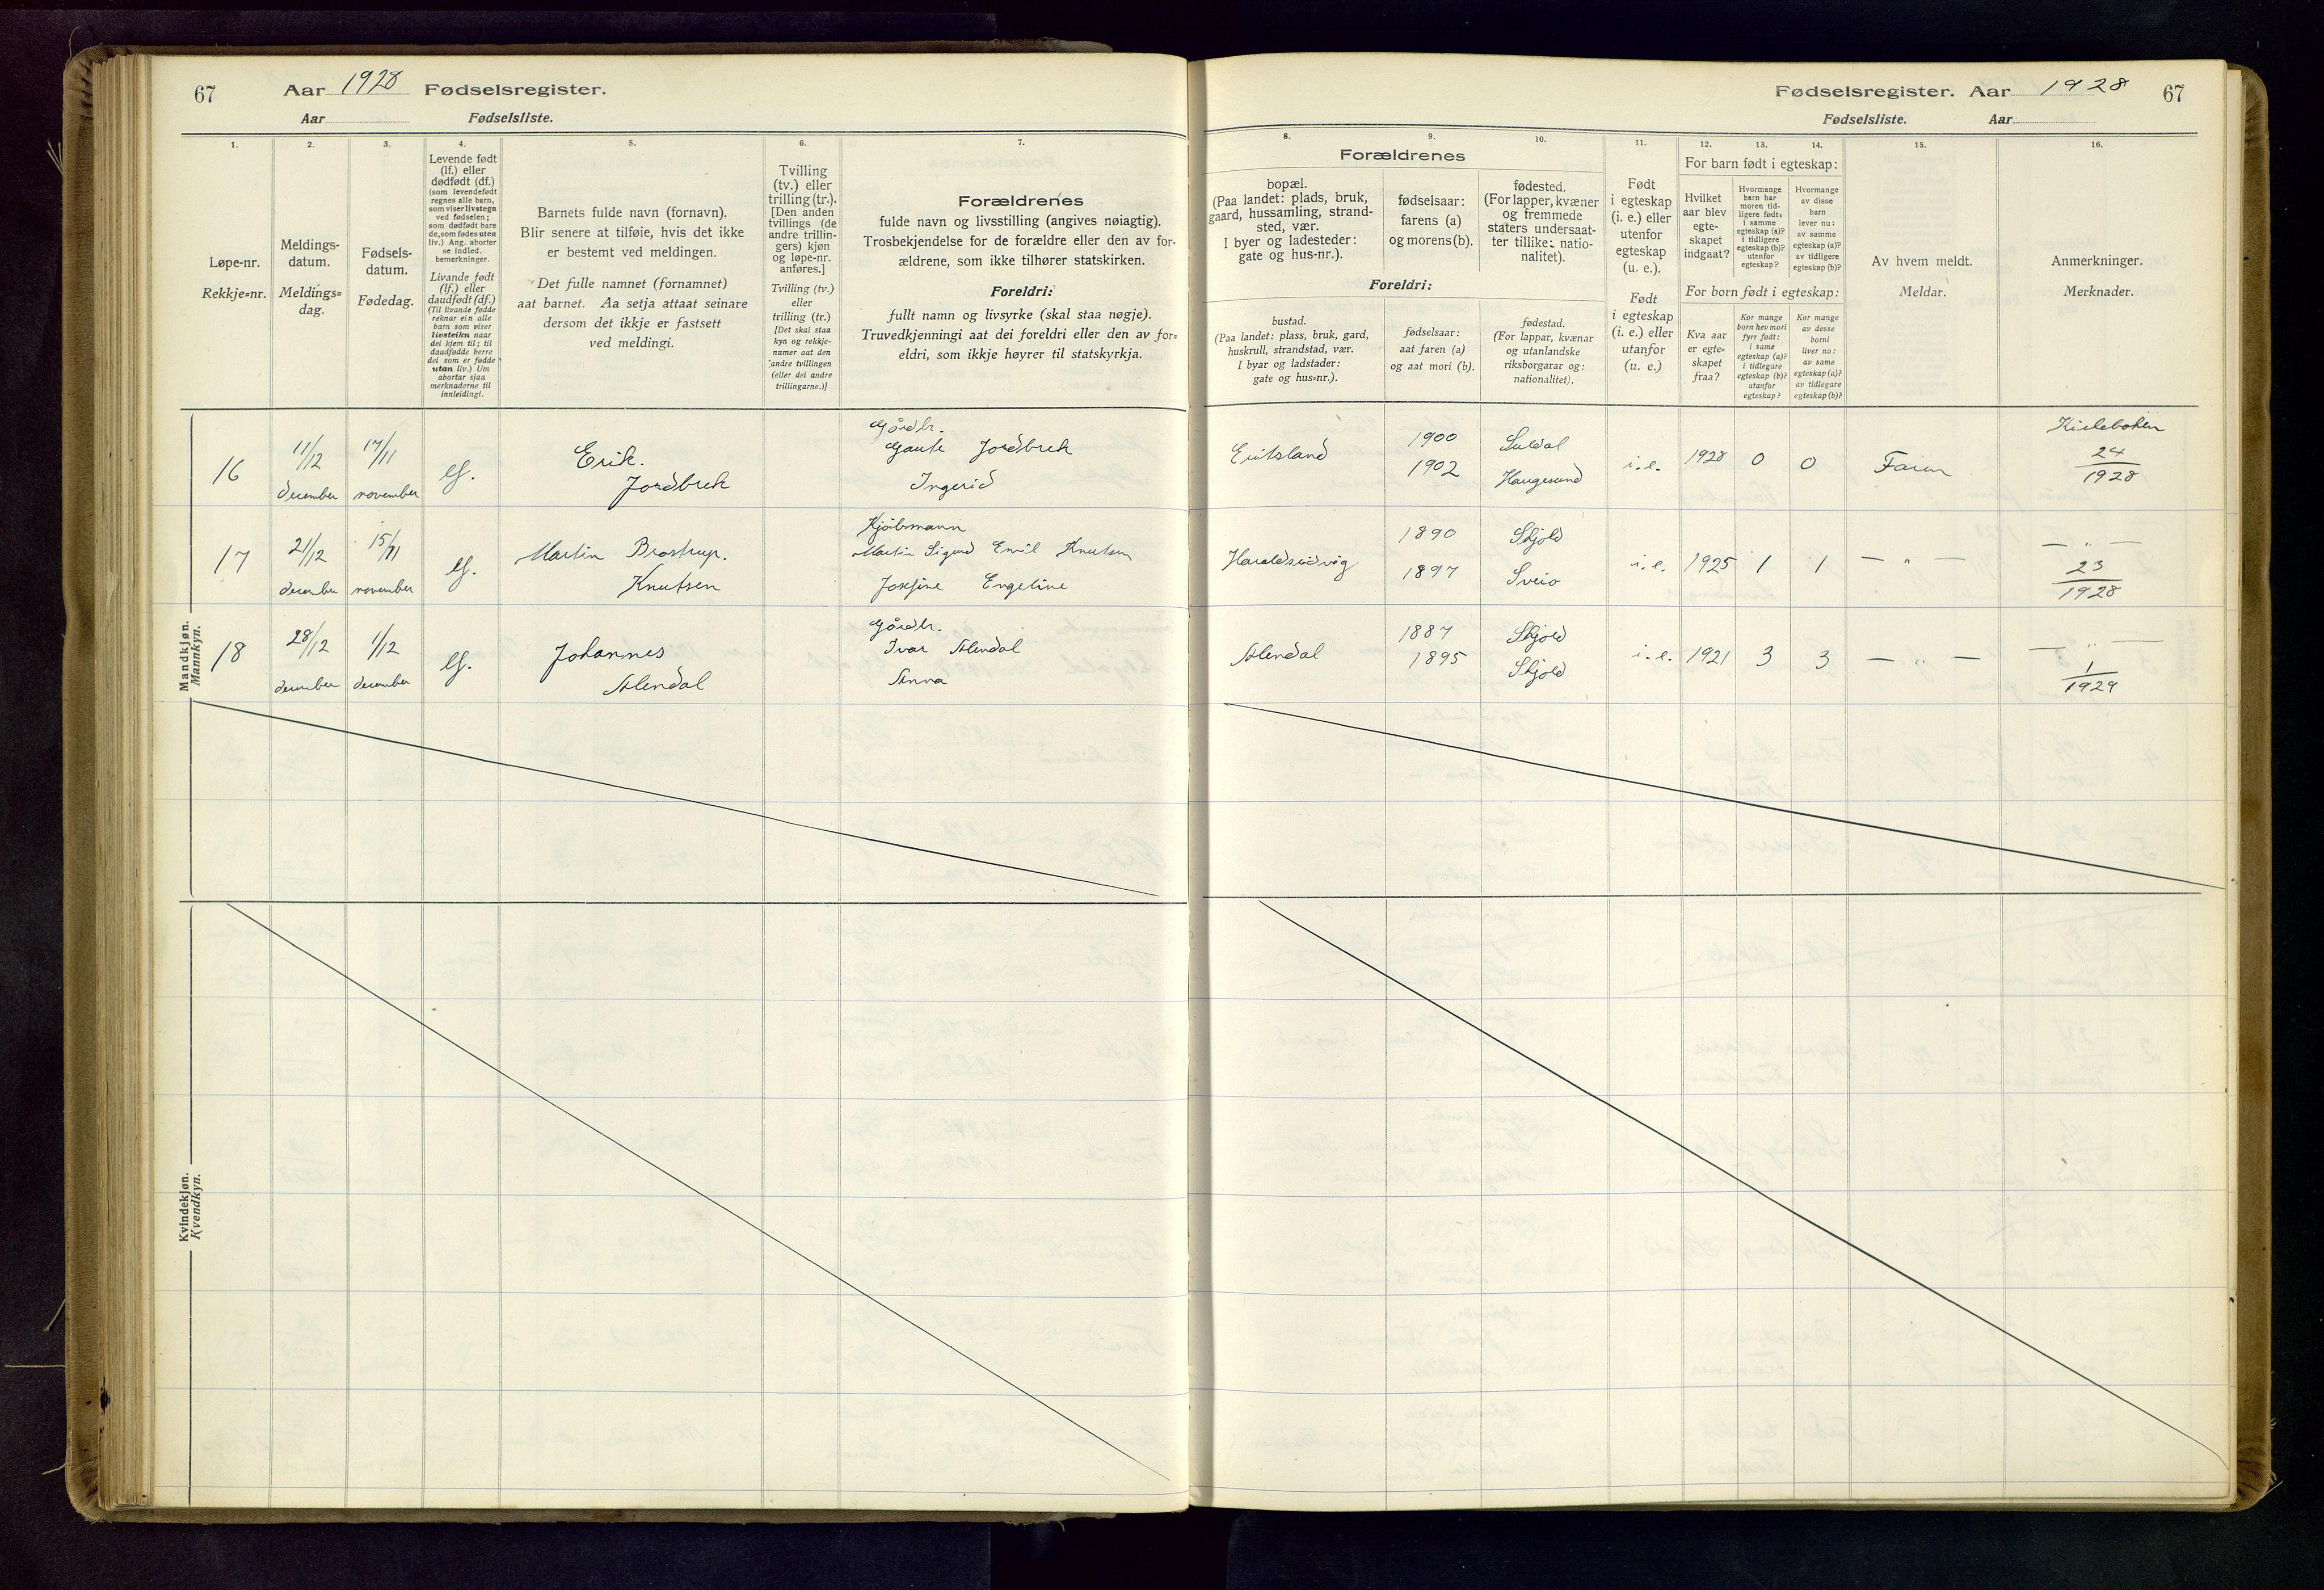 67 Aar 1928 Fødselsregister.
Aar Fødselsliste.
1.
2.
3.
4.
5.
6.
7.
Løpe-nr.
Rekkje=nr.
Meldings-
datum.
Meldings=
dag.
Fødsels-
datum.
Fødedag.
Levende født
(lf.) eller
dødfødt (df.)
(som levendefødt
regnes alle barn,
som viser livstegn
ved fødselen;
som dødfødt bare
de, som fødes uten
liv.) Ang. aborter
se indled.
bemerkninger.
Livande født
(lf.) eller
daudfødt (df.)
(Til livande fødde
reknar ein alle
barn som viser
livsteikn naar
dei kjem til; til
daudfødde berre
dei som er fødde
utan liv.) Um
abortar sjaa
merknaderne til
innleidingi.
Barnets fulde navn (fornavn).
Blir senere at tilføie, hvis det ikke
er bestemt ved meldingen.
Det fulle namnet (fornamnet)
aat barnet. Aa setja attaat seinare
dersom det ikkje er fastsett
ved meldingi.
Tvilling
(tv.) eller
trilling (tr.).
[Den anden
tvillings (de
andre trillin-
gers) kjøn
og løpe-nr.
anføres.]
Tvilling (tv.)
eller
trilling (tr.)
[Det skal staa
kyn og rekkje-
numer aat den
andre tvillingen
(eller dei andre
trillingarne.)]
Forældrenes
fulde navn og livsstilling (angives nøiagtig).
Trosbekjendelse for de forældre eller den av for-
ældrene, som ikke tilhører statskirken.
Foreldri:
fullt namn og livsyrke (skal staa nøgje).
Truvedkjenningi aat dei foreldri eller den av for=
eldri, som ikkje høyrer til statskyrkja.
Mandkjøn.
Mannkyn.
16
11/12
december
17/11
november
lf.
Erik.
Jordbrek
Gårdbr.
Gaute Jordbrek
Ingerid
17
21/12
december
15/11
november
lf.
Martin Brostrup.
Knutsen
Kjøbmann
Martin Sigurd Emil Knutsen
Josefine Engeline
18
28/12
december
1/12
december
lf.
Johannes
Alendal
Gårdbr.
Ivar Alendal
Anna
Kvindekjøn.
Kvendkyn.
Fødselsregister. Aar 1928 67
Fødselsliste. Aar
8.
9.
10.
11.
12.
13.
14.
15.
16.
Forældrenes
bopæl.
(Paa landet: plads, bruk,
gaard, hussamling, strand-
sted, vær.
I byer og ladesteder:
gate og hus-nr.).
fødselsaar:
farens (a)
og morens (b).
fødested.
(For lapper, kvæner
og fremmede
staters undersaat-
ter tillike: natio-
nalitet).
Foreldri:
bustad.
(Paa landet: plass, bruk, gard,
huskrull, strandstad, vær.
I byar og ladstader:
gate og hus=nr.).
fødselsaar:
aat faren (a)
og aat mori (b).
fødestad.
(For lappar, kvænar
og utanlandske
riksborgarar og:
nationalitet).
Født
i egteskap
(i. e.) eller
utenfor
egteskap
(u. e.).
Født
i egteskap
(i. e.) eller
utanfor
(u. e.)
For barn født i egteskap:
Hvilket
aar blev
egte-
skapet
indgaat?
Hvormange
barn har
moren tid-
ligere født:
i samme
egteskap (a)?
i tidligere
egteskap (b)?
utenfor
egteskap?
Hvormange
av disse
barn
lever nu:
av samme
egteskap (a)?
av tidligere
egteskap (b)?
For born født i egteskap:
Kva aar
er egte=
skapet
fraa?
Kor mange
born hev mori
fyrr født:
i same
egteskap (a)?
i tidlegare
egteskap (b)?
utanfor
egteskap?
Kor mange
av desse
borni
liver no:
av same
egteskap (a)?
av tidlegare
egteskap (b)?
Av hvem meldt.
Meldar.
Anmerkninger.
Merknader.
1900
1902
Suldal
Haugesund
i.e.
1928
0
0
Faren
Kirkeboken
24
1928
Haraldseidvåg
1890
1897
Skjold
Sveio
i.e.
1925
1
1
— " —
— " —
23
1928
Alendal
1887
1895
Skjold
Skjold
i.e.
1921
3
3
— " —
— " —
1
1929